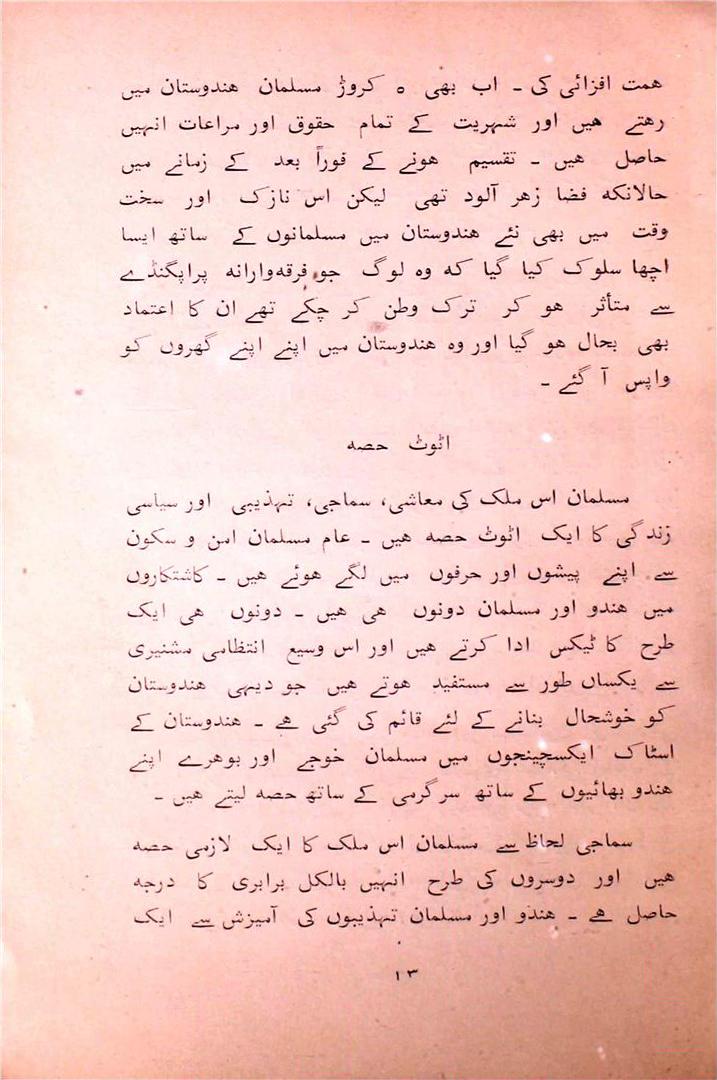 همت افزائی کی ـ اب بھی ۵ کروڑ مسلمان هندوستان میں
رهتے هیں اور شہریت کے تمام حقوق اور مراعات انہیں
حاصل هیں ـ تقسیم هونے کے فوراً بعد کے زمانے میں
حالانکه فضا زهر آلود تھی لیکن اس نازک اور سخت
وقت میں بھی نئے هندوستان میں مسلمانوں کے ساتھ ایسا
اچھا سلوک کیا گیا که وه لوگ جو فرقهوارانه پراپگنڈے
سے متأثر هو کر ترک وطن کر چکے تھے ان کا اعتماد
بھی بحال هو گیا اور وه هندوستان میں اپنے اپنے گھروں کو
واپس آ گئے ـ
اٹوٹ حصه
مسلمان اس ملک کی معاشی، سماجی، تہذیبی اور سیاسی
زندگی کا ایک اٹوٹ حصه هیں ـ عام مسلمان امن و سکون
سے اپنے پیشوں اور حرفوں میں لگے هوئے هیں ـ کاشتکاروں
میں هندو اور مسلمان دونوں هی هیں ـ دونوں هی ایک
طرح کا ٹیکس ادا کرتے هیں اور اس وسیع انتظامی مشنیری
سے یکساں طور سے مستفید هوتے هیں جو دیہی هندوستان
کو خوشحال بنانے کے لئے قائم کی گئی هے ـ هندوستان کے
اسٹاک ایکسچینجوں میں مسلمان خوجے اور بوهرے اپنے
هندو بھائیوں کے ساتھ سرگرمی کے ساتھ حصه لیتے هیں ـ
سماجی لحاظ سے مسلمان اس ملک کا ایک لازمی حصه
هیں اور دوسروں کی طرح انہیں بالکل برابری کا درجه
حاصل هے ـ هندو اور مسلمان تہذیبوں کی آمیزش سے ایک
۱۳